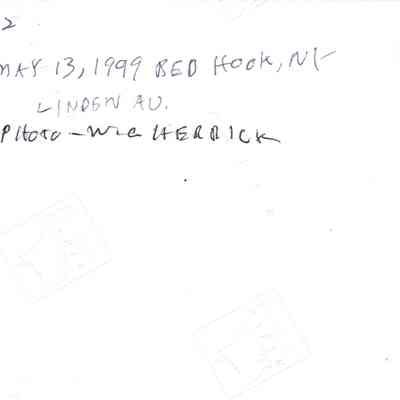 2
MAY 13, 1999 RED HOOK, NY
LINDEN AV.
PHOTO - Wm HERRICK